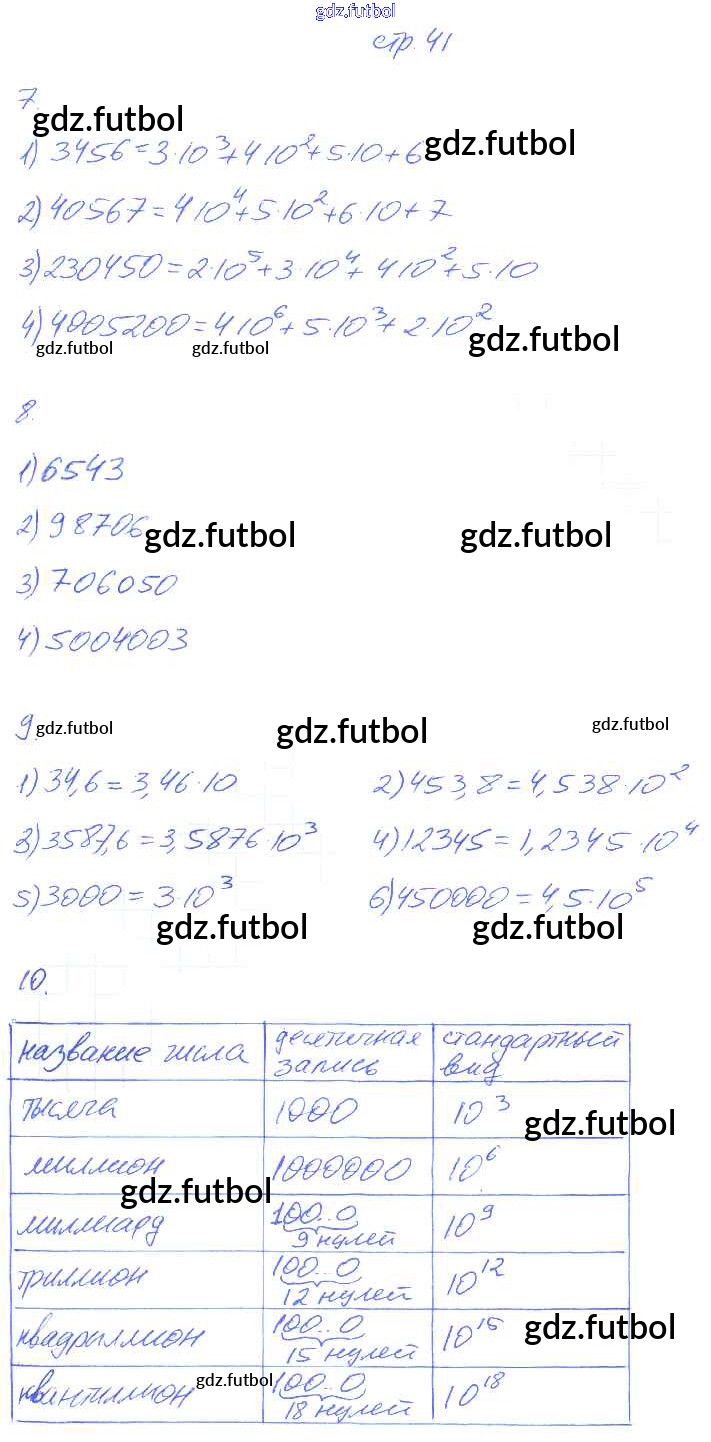 gdz.futbol
стр. 41
7.
gdz.futbol
1) 3456=3·10³+4 10²+5·10+6
gdz.futbol
2) 40567=4 10⁴+5·10²+6·10+7
3) 230450=2·10⁵+3·10⁴+ 4 10²+5·10
4) 4005200=4 10⁶+5·10³+2·10²
gdz.futbol gdz.futbol gdz.futbol
8.
1) 6543
2) 98706
gdz.futbol gdz.futbol
3) 706050
4) 5004003
9.
gdz.futbol gdz.futbol gdz.futbol
1) 34,6=3,46·10 2) 453,8=4,538·10²
3) 3587,6=3,5876·10³ 4) 12345=1,2345·10⁴
5) 3000=3·10³ 6) 450000=4,5·10⁵
gdz.futbol gdz.futbol
10.
название числа десятичная запись стандартный вид
тысяча 1000 10³
gdz.futbol
миллион 1000000 10⁶
gdz.futbol
миллиард 100..0 10⁹
9 нулей
триллион 100..0 10¹²
12 нулей
квадриллион 100..0 10¹⁵
gdz.futbol
15 нулей
квантиллион 100..0 10¹⁸
gdz.futbol
18 нулей